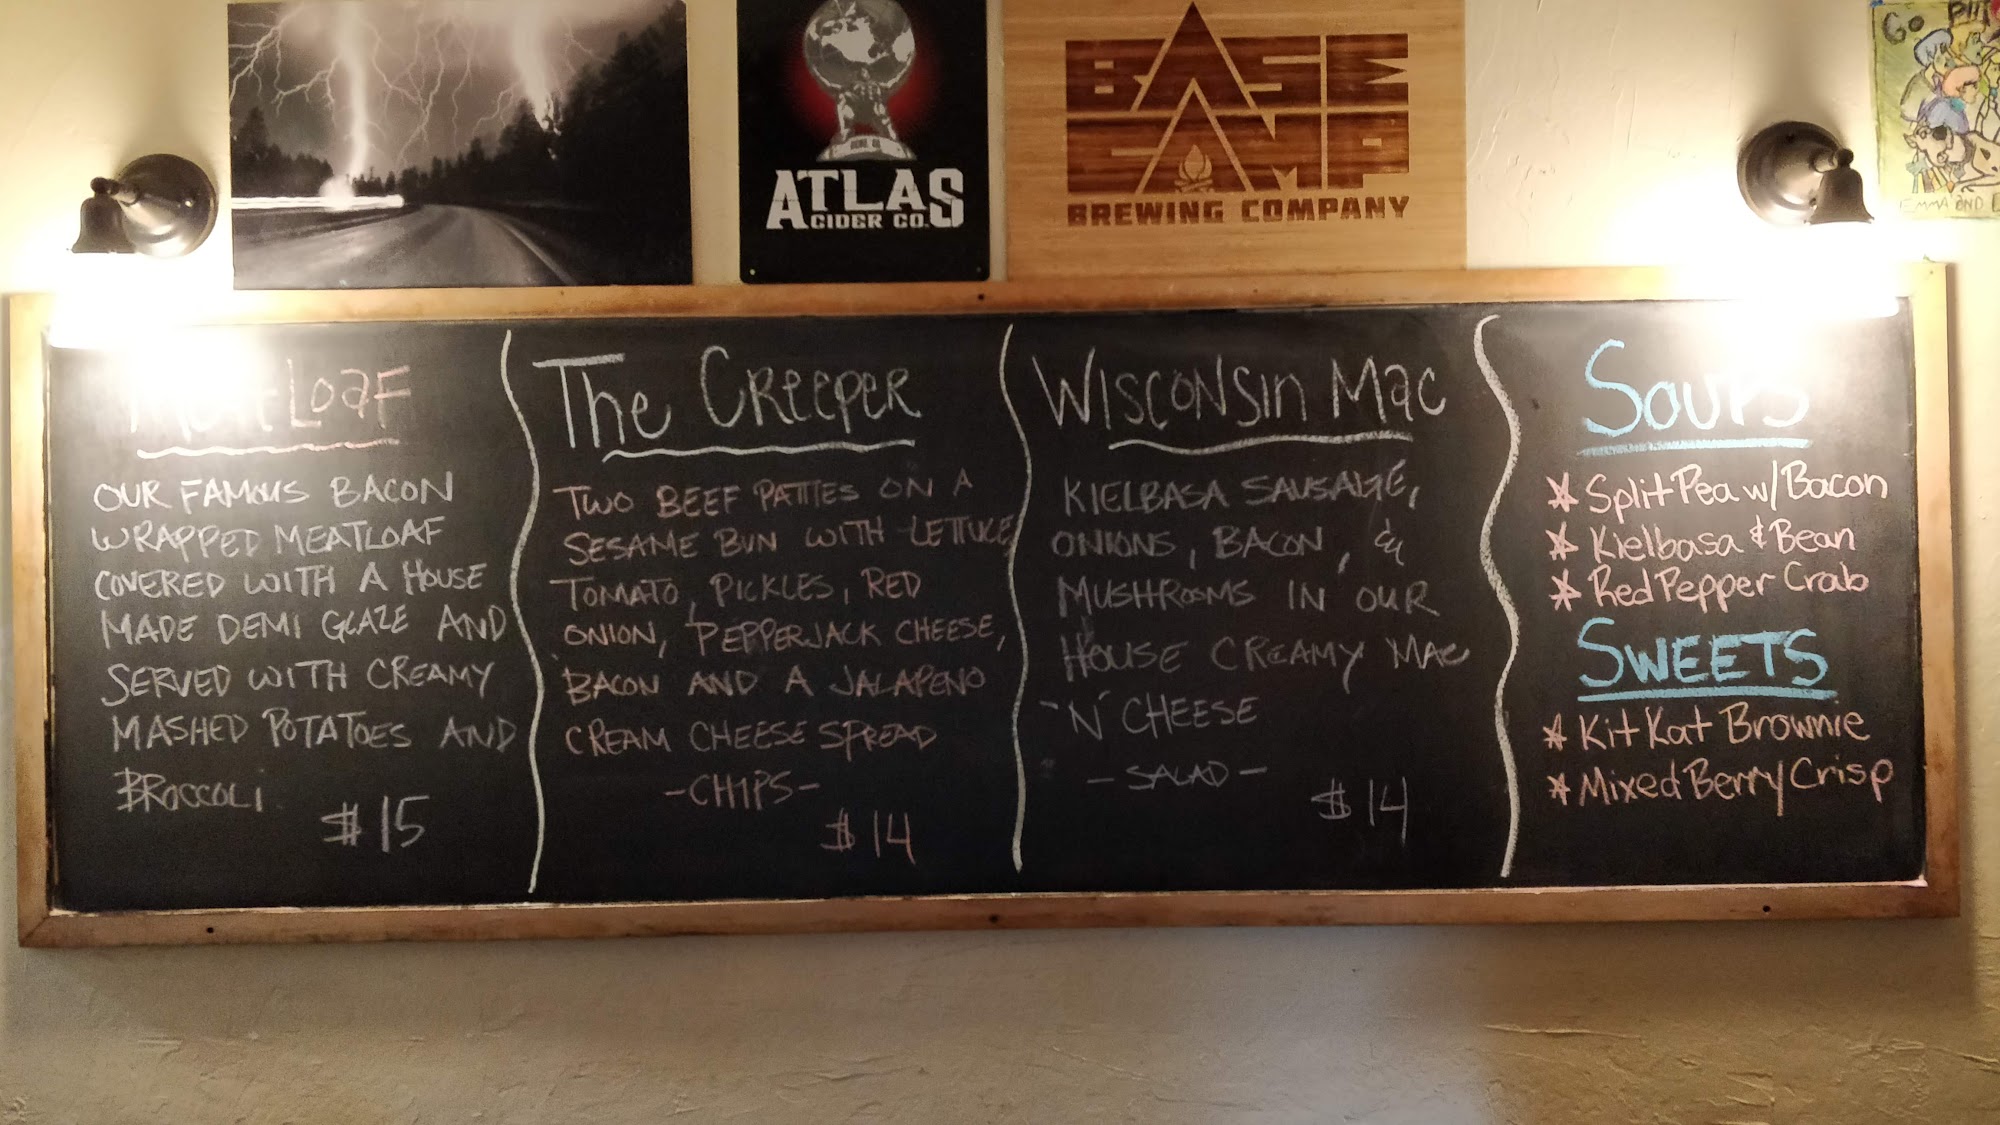 ATLAS
CIDER CO.
BASE
CAMP
BREWING COMPANY
GO
EMMA AND
MEATLOAF
OUR FAMOUS BACON
WRAPPED MEATLOAF
COVERED WITH A HOUSE
MADE DEMI GLAZE AND
SERVED WITH CREAMY
MASHED POTATOES AND
BROCCOLI
$15
THE CREEPER
TWO BEEF PATTIES ON A
SESAME BUN WITH LETTUCE,
TOMATO, PICKLES, RED
ONION, PEPPERJACK CHEESE,
BACON AND A JALAPENO
CREAM CHEESE SPREAD
-CHIPS-
$14
WISCONSIN MAC
KIELBASA SAUSAGE,
ONIONS, BACON, &
MUSHROOMS IN OUR
HOUSE CREAMY MAC
'N' CHEESE
- SALAD -
$14
SOUPS
* Split Pea w/ Bacon
* Kielbasa & Bean
* Red Pepper Crab
SWEETS
* Kit Kat Brownie
* Mixed Berry Crisp